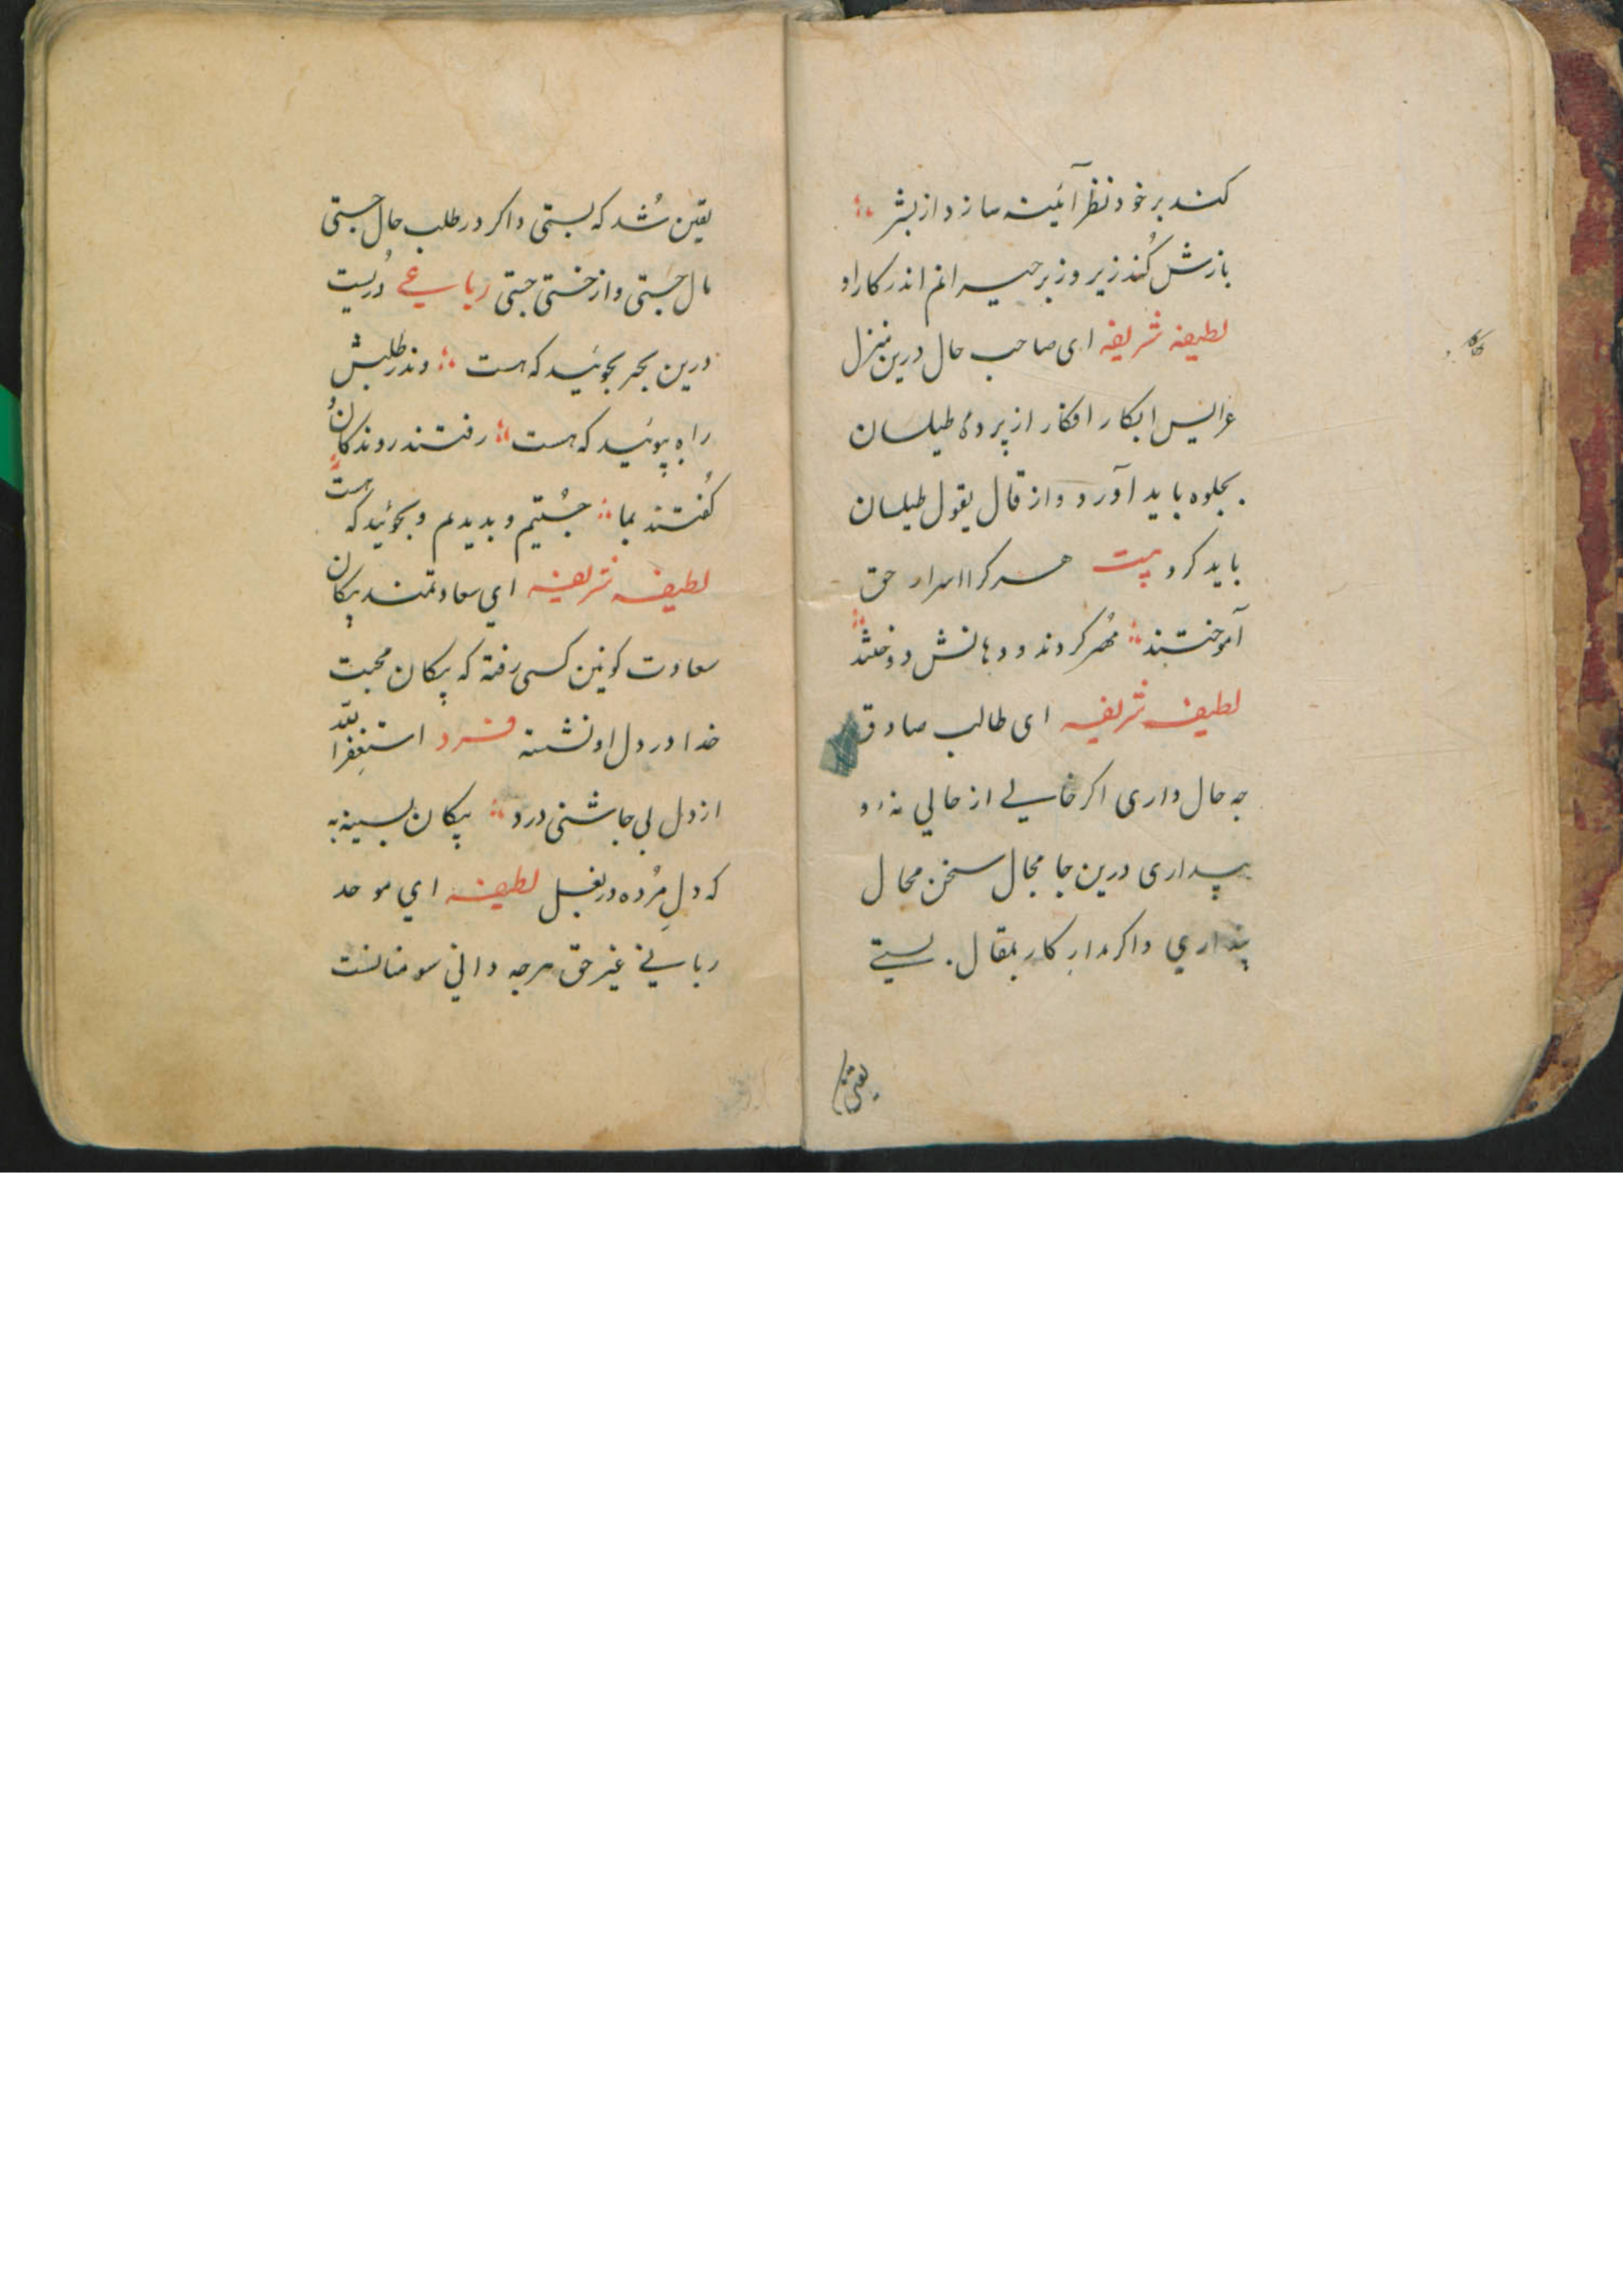 کند بر خود نظر آئینه سازد از بشر
بازش کُند زیر و زبر حیرانم اندر کار او
لطیفه شریفه ای صاحب حال درین منزل
عرایس ابکار افکار از پرده طیلسان
بجلوه باید آورد و از قال یقول طیلسان
باید کرد بیت هر کرا اسرار حق
آموختند مُهر کردند و دهانش دوختند
لطیفه شریفه ای طالب صادق
چه حال داری اگر خالی از حالی نه و
پنداری درین جا مجال سخن محال
پنداری و اگر مدار کار بمقال بستی
یقین
یقین شُد که بستی و اگر در طلب حال جستی
مال جستی و از خستی جستی رباعی دُریست
درین بحر بجوئید که هست وندر طلبش
راه بپوئید که هست رفتند روندکان و
کُفتند بما جُستیم و بدیدیم و بجوئید که هست
لطیفه شریفه ای سعادتمند پیکان
سعادت کونین کسی رفته که پیکان محبت
خدا در دل او نشسته فرد استغفرالله
از دل بی چاشنی درد پیکان بسینه به
که دلِ مُرده در بغل لطیفه ای موحد
ربانی غیر حق هرچه دانی سومناتست